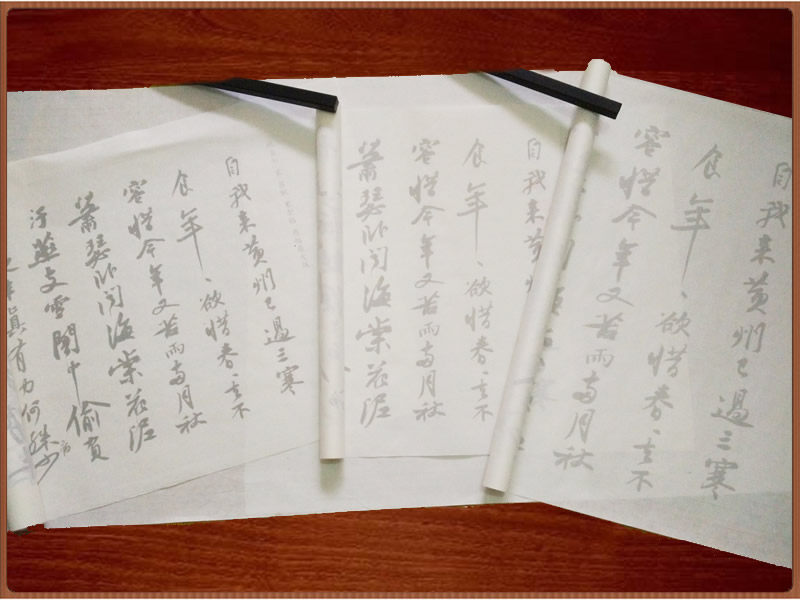 自我来黄州已過三寒
食年、欲惜春、去不
容惜今年又苦雨兩月秋
自我来黄州
食年、欲惜春、去不
容惜今年又苦雨兩月秋
蕭瑟卧聞海棠花泥
自我来黄州已過三寒
食年、欲惜春、去不
容惜今年又苦雨兩月秋
蕭瑟卧聞海棠花泥
汙燕支雪闇中偷負
夜半真有力何殊少